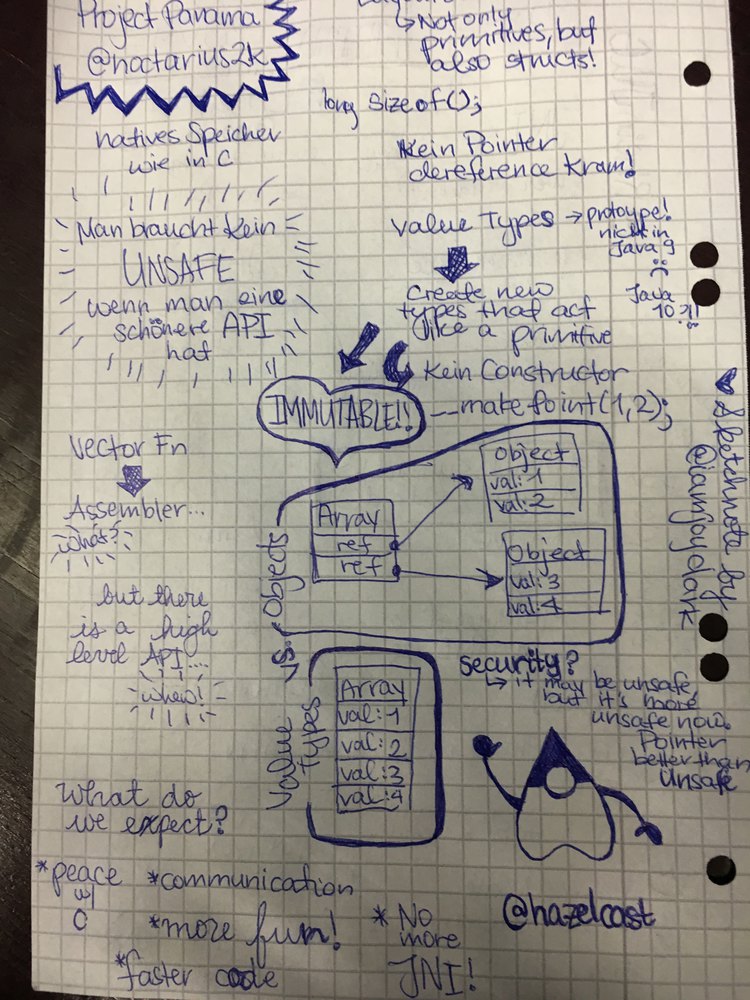 Project Panama
@noctarius2k
Layouts
↳ Not only
primitives, but
also structs!
long sizeof();
natives Speicher
wie in C
Kein Pointer
dereference Kram!
Man braucht kein
UNSAFE
wenn man eine
schönere API
hat
Value Types → protoype!
nicht in
Java 9
Java
10?!!
Create new
types that act
like a primitive
Kein Constructor
IMMUTABLE!!
makePoint(1,2);
Vector Fn
Assembler...
what?
but there
is a high
level API...
whew!
Objects
Array
ref
ref
Object
val:1
val:2
Object
val:3
val:4
vs.
Value
Types
Array
val:1
val:2
val:3
val:4
♥ Sketchnote by
@iamjoyclark
security?
↳ it may be unsafe,
but it's more
unsafe now.
Pointer
better than
Unsafe
What do
we expect?
*peace
w/
C
*communication
*more fun!
*faster code
* No
more
JNI!
@hazelcast